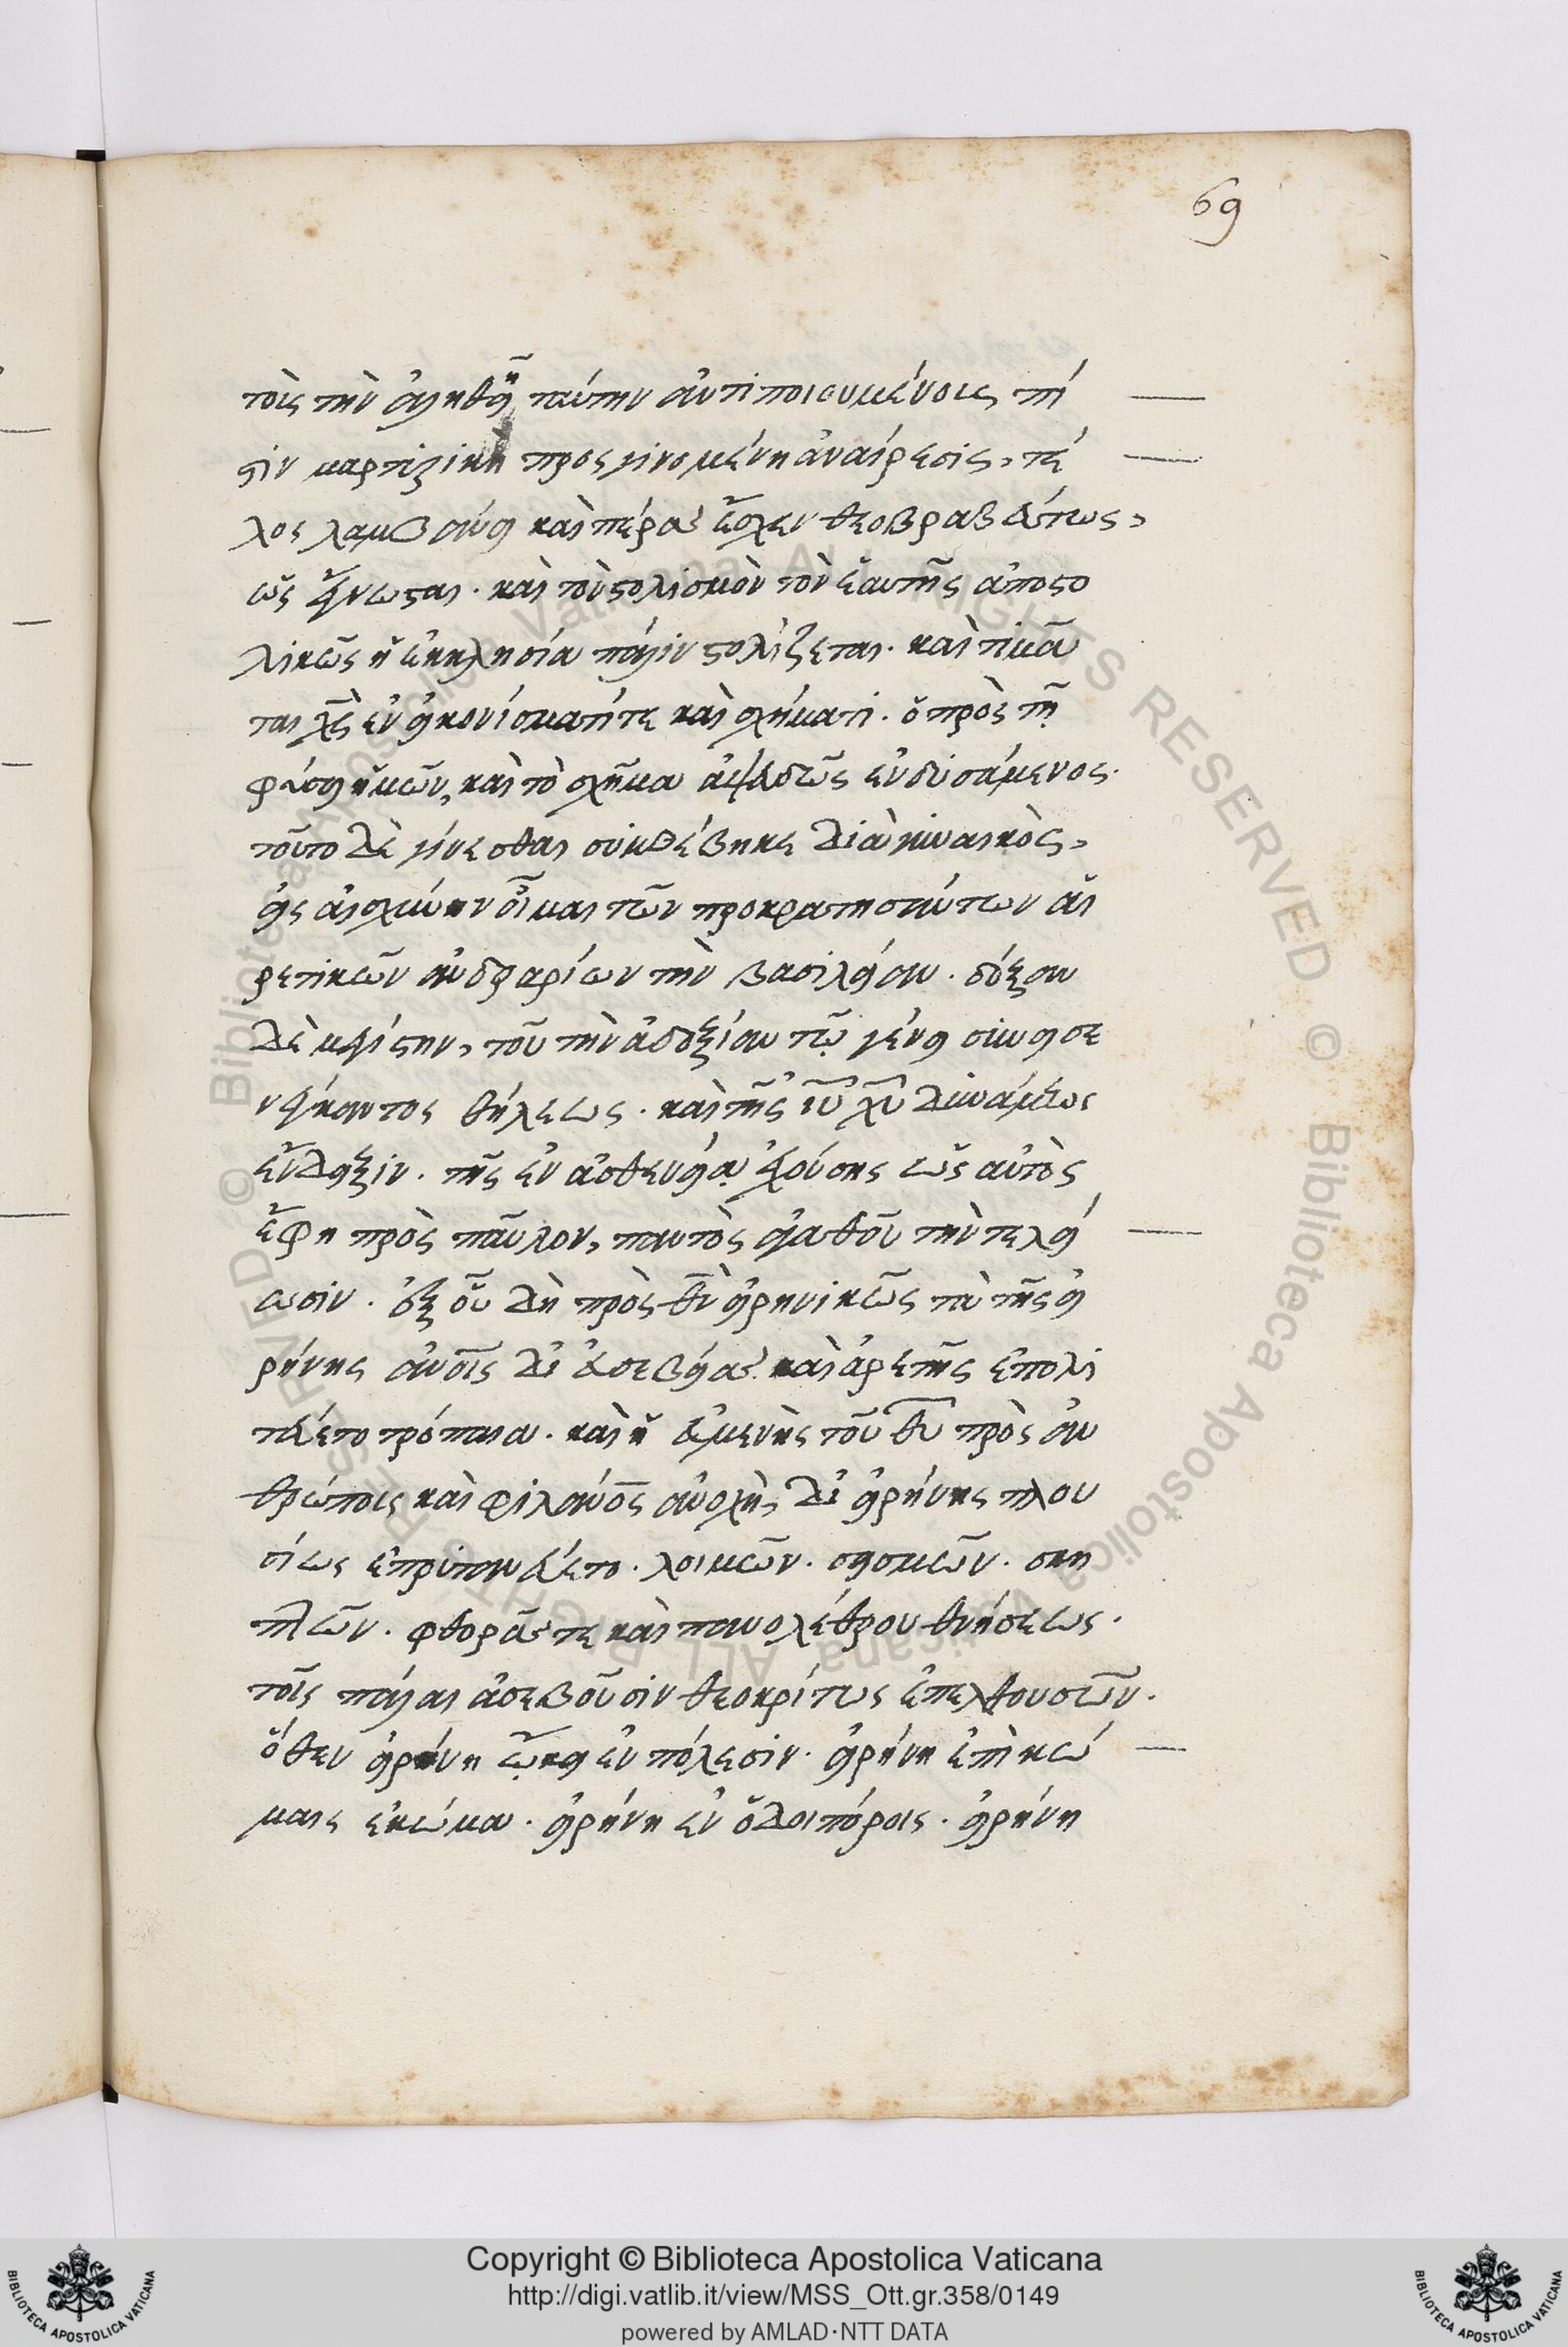 69
τοῖς τὴν ἀληθῆ ταύτην ἀντιποιουμένοις πί
στιν μαρτυρικὴ προσγινομένη ἀναίρεσις, τέ
λος λαμβάνει καὶ πέρας ἔσχεν θεοβραβεύτως,
ὡς ἔγνωσται. καὶ τὸν στολισμὸν τὸν ἑαυτῆς ἀποστο
λικῶς ἡ ἐκκλησία πάλιν στολίζεται. καὶ τιμᾶ
ται χς ἐν εἰκονίσματί τε καὶ σχήματι. ὁ πρὸς τῇ
φύσει ἡμῶν, καὶ τὸ σχῆμα ἀψευδῶς ἐνδυσάμενος.
τοῦτο δὲ γίνεσθαι συμβέβηκε διὰ γυναικὸς,
εἰς αἰσχύνην οἶμαι τῶν προκρατησάντων αἱ
ρετικῶν ἀνδραρίων τὴν βασιλείαν. δόξαν
δὲ μεγίστην, τοῦ τὴν ἀδοξίαν τῷ γένει συνεισε
νεγκαντος θήλεως. καὶ τῆς ιυ χυ δυνάμεως
ἔνδειξιν. τῆς ἐν ἀσθενείᾳ ἐχούσης ὡς αὐτὸς
ἔφη πρὸς παῦλον, παντὸς ἀγαθοῦ τὴν τελεί
ωσιν. ἐξ οὗ δὴ πρὸς θν εἰρηνικῶς τὰ τῆς εἰ
ρήνης αὐτοῖς δι εὐσεβείας καὶ ἀρετῆς ἐπολι
τεύετο τρόπαια. καὶ ἡ εὐμενὴς τοῦ θυ πρὸς ἀν
θρώποις καὶ φιλανος ἀνοχὴ, δι εἰρήνης πλου
σίως ἐπρυτανεύετο. λοιμῶν. σεισμῶν. σκη
πτῶν. φθορᾶς τε καὶ πανολέθρου θνήσεως.
τοῖς πάλαι ἀσεβοῦσιν θεοκρίτως ἐπελθουσῶν.
ὅθεν εἰρήνη ᾤκει ἐν πόλεσιν. εἰρήνη ἐπὶ κώ
μαις ἐκώμα. εἰρήνη ἐν ὁδοιπόροις. εἰρήνη
Copyright © Biblioteca Apostolica Vaticana
http://digi.vatlib.it/view/MSS_Ott.gr.358/0149
powered by AMLAD·NTT DATA